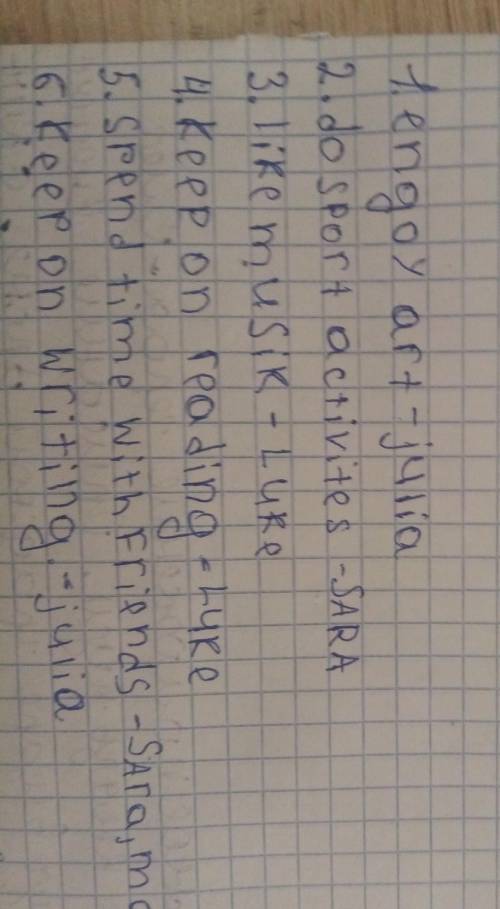 1. engoy art - julia
2. do sport activites - SARA
3. like musik - Luke
4. keep on reading - Luke
5. spend time with Friends - SAra,
6. keep on writing. - julia